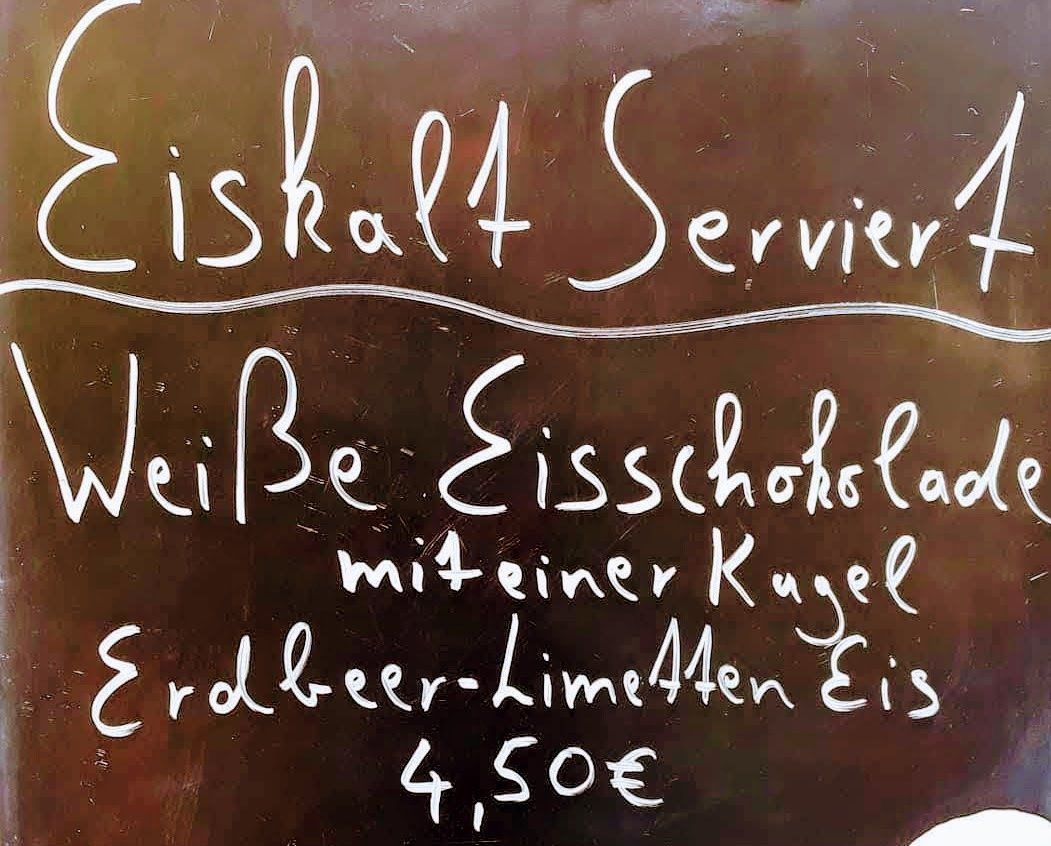 Eiskalt Serviert
Weiße Eisschokolade
mit einer Kugel
Erdbeer-Limetten Eis
4,50€